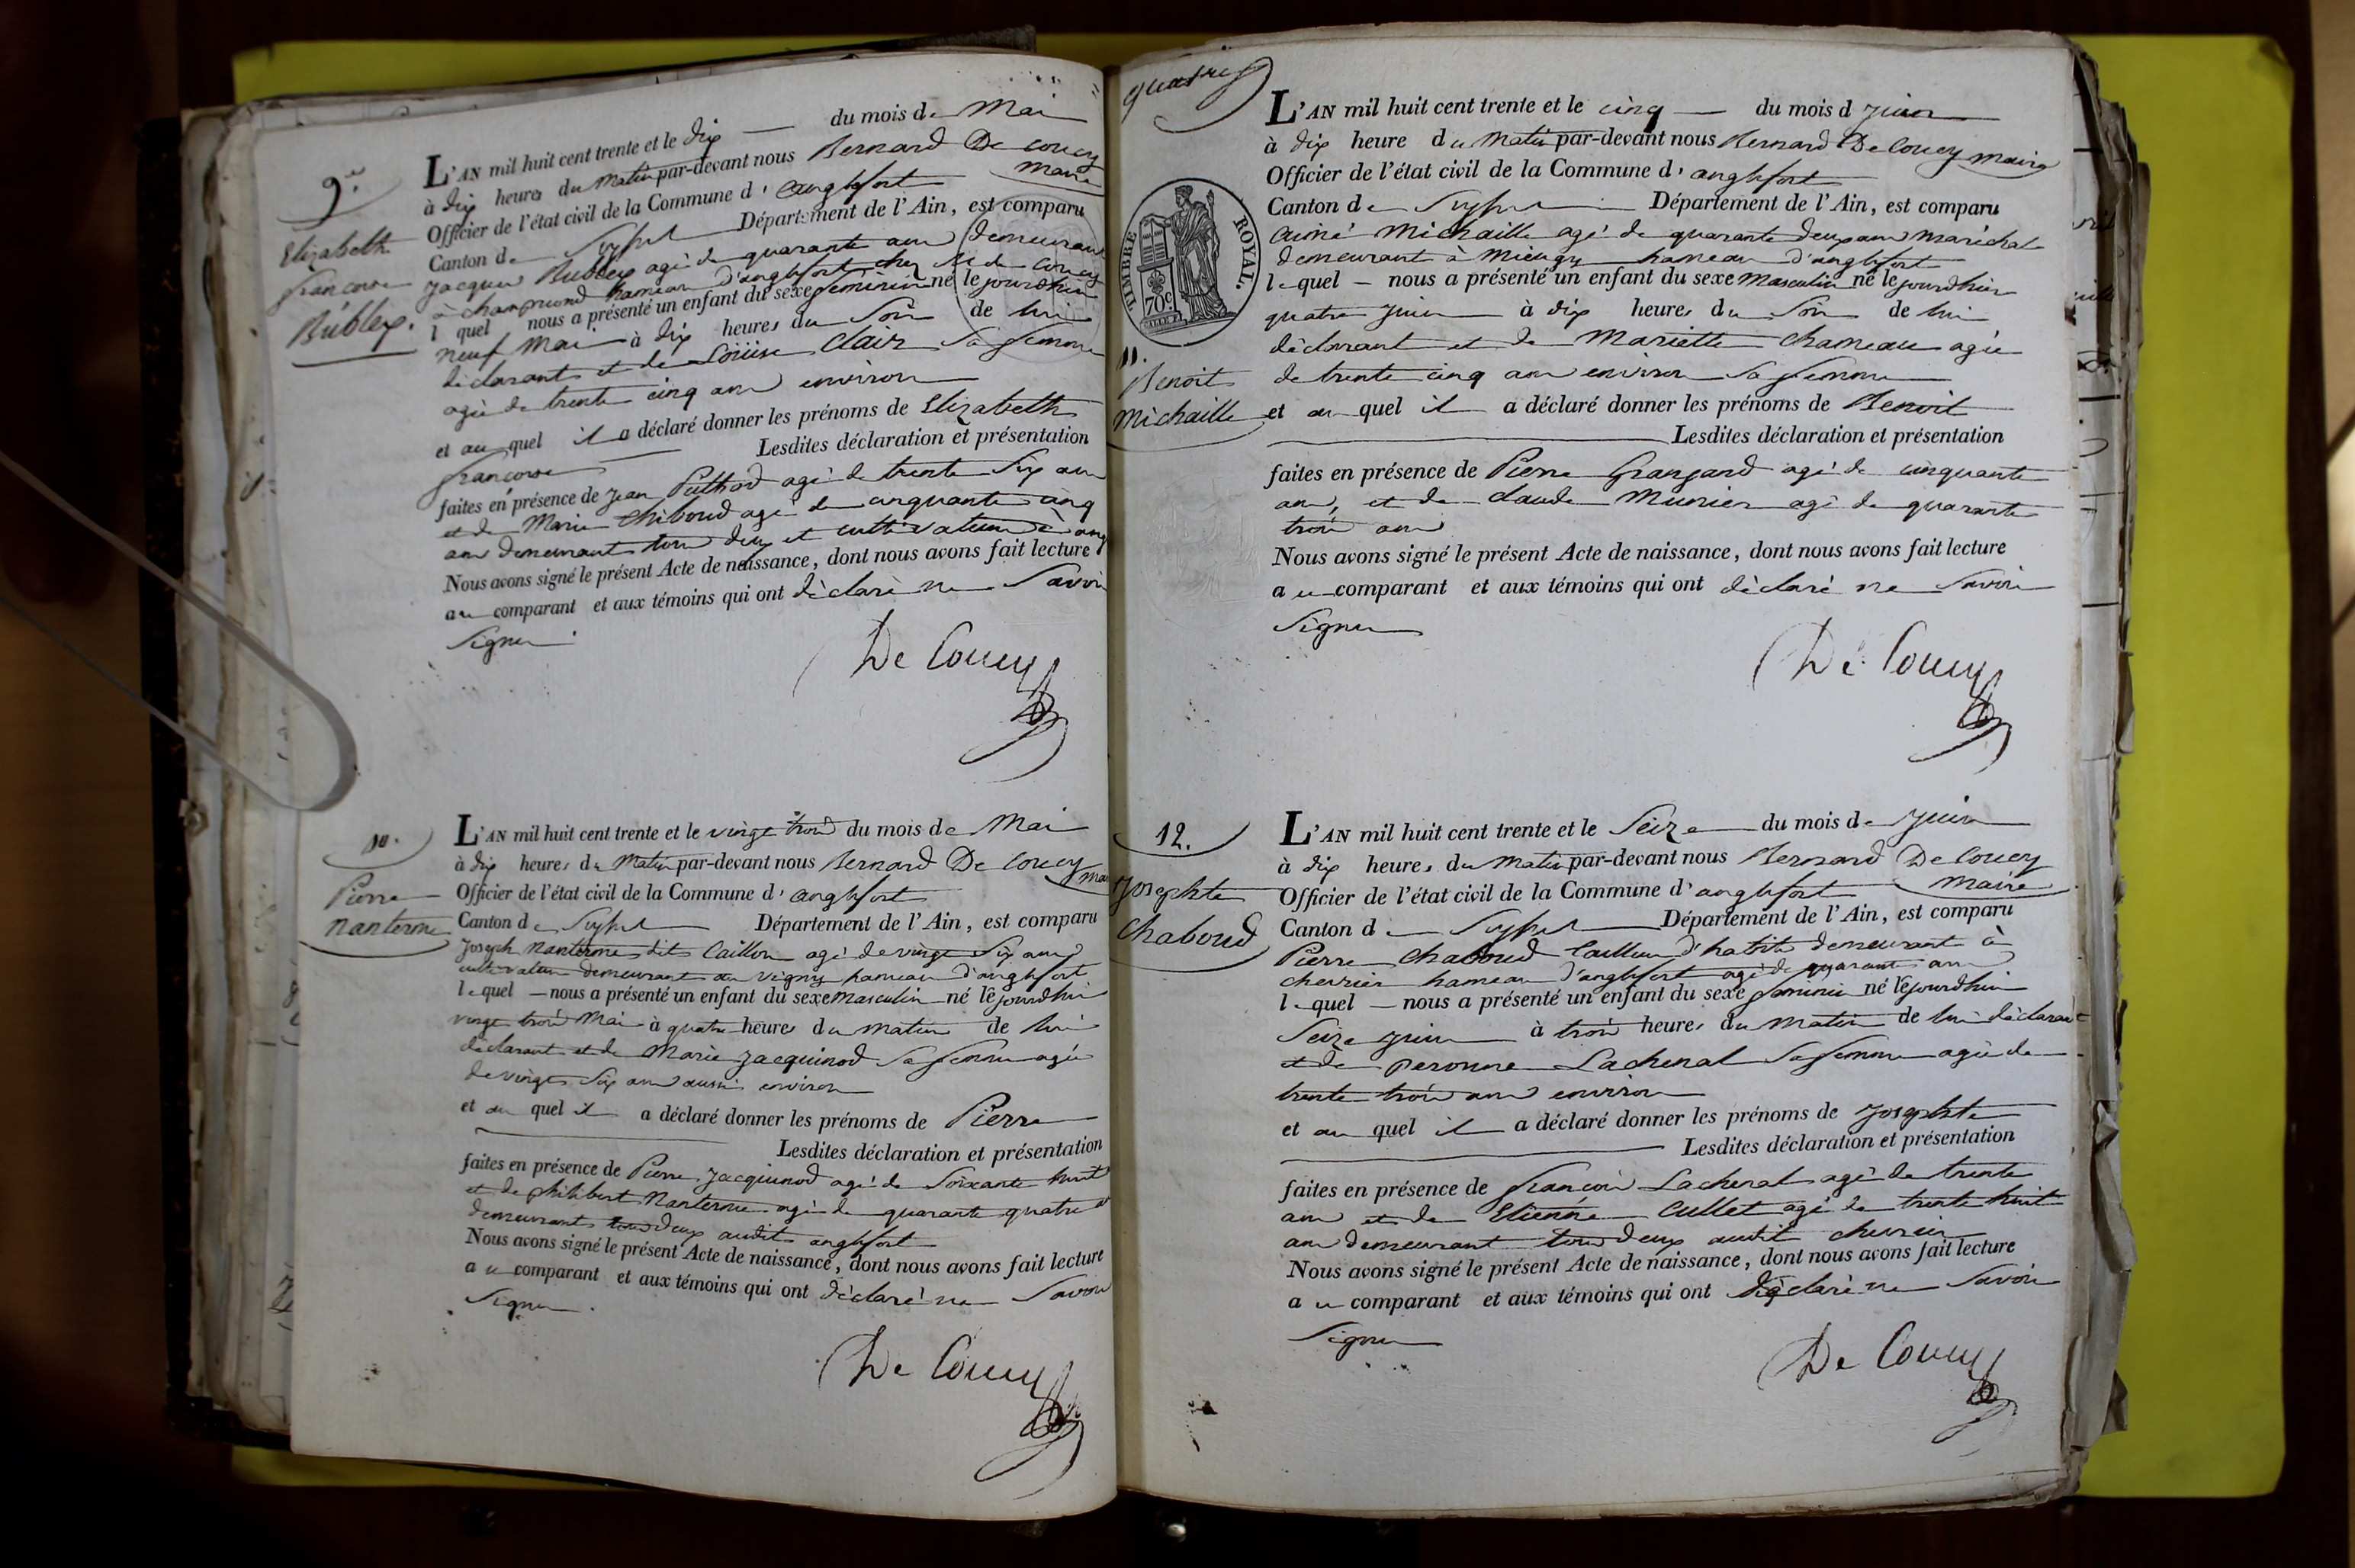 9.e
Elizabeth
francoise
Bubley.
L'AN mil huit cent trente et le dix du mois de Mai
à dix heures du Matin par-devant nous Bernard De Coucy
maire
Officier de l'état civil de la Commune d'anglefort
Canton de Seyssel Département de l'Ain, est comparu
jacques Bubley agé de quarante ans demeurant
à champriond hameau d'anglefort chez Mr de Coucy
l quel nous a présenté un enfant du sexe feminin né le jourdhier
neuf Mai à dix heures du Soir de lui
déclarant et de Loüise Clair Sa femme
agée de trente cinq ans environ
et au quel il a déclaré donner les prénoms de Elizabeth
francoise Lesdites déclaration et présentation
faites en présence de jean Puthod agé de trente Six ans
et de Marie Chiboud agé de cinquante cinq
ans demeurant tous deux et cultivateurs à ang
Nous avons signé le présent Acte de naissance, dont nous avons fait lecture
au comparant et aux témoins qui ont déclaré ne Savoir
Signer
De Coucy
10.
Pierre
nanterme
L'AN mil huit cent trente et le vingt trois du mois de Mai
à dix heures du Matin par-devant nous Bernard De Coucy mai
Officier de l'état civil de la Commune d'anglefort
Canton de Seyssel Département de l'Ain, est comparu
Joseph nanterme dit Caillon agé de vingt Six ans
cultivateur demeurant au vigny hameau d'anglefort
le quel nous a présenté un enfant du sexe masculin né le jourdhui
vingt trois Mai à quatre heures du matin de lui
déclarant et de Marie jacquinod Sa femme agée
de vingt Six ans aussi environ
et au quel il a déclaré donner les prénoms de Pierre
Lesdites déclaration et présentation
faites en présence de Pierre jacquinod agé de Soixante huit
et de philibert Nanterme agé de quarante quatre
demeurant tous deux audit anglefort
Nous avons signé le présent Acte de naissance, dont nous avons fait lecture
au comparant et aux témoins qui ont déclaré ne Savoir
Signer.
De Coucy
TIMBRE ROYAL.
70c
11.
Benoit
michaille
L'AN mil huit cent trente et le cinq du mois d juin
à dix heure du Matin par-devant nous Bernard De Coucy maire
Officier de l'état civil de la Commune d'anglefort
Canton de Seyssel Département de l'Ain, est comparu
aimé Michaille agé de quarante deux ans maréchal
demeurant à Mieugy hameau d'anglefort
le quel nous a présenté un enfant du sexe Masculin né le jourdhier
quatre juin à dix heures du Soir de lui
déclarant et de Mariette Chameau agée
de trente cinq ans environ Sa femme
et au quel il a déclaré donner les prénoms de Benoit
Lesdites déclaration et présentation
faites en présence de Pierre Grangard agé de cinquante
ans, et de claude Munier agé de quarante
trois ans
Nous avons signé le présent Acte de naissance, dont nous avons fait lecture
au comparant et aux témoins qui ont déclaré ne Savoir
Signer
De Coucy
12.
Josephte
Chaboud
L'AN mil huit cent trente et le Seize du mois de juin
à dix heures du matin par-devant nous Bernard De Coucy
maire
Officier de l'état civil de la Commune d'anglefort
Canton de Seyssel Département de l'Ain, est comparu
Pierre Chaboud tailleur d'habits demeurant à
chevrier hameau d'anglefort agé de quarante ans
le quel nous a présenté un enfant du sexe feminin né le jourdhui
Seize juin à trois heures du matin de lui déclarant
et de peronne Lachenal Sa femme agée de
trente trois ans environ
et au quel il a déclaré donner les prénoms de Josephte
Lesdites déclaration et présentation
faites en présence de francois Lachenal agé de trente
ans et de Etienne Cullet agé de trente huit
ans demeurant tous deux audit chevrier
Nous avons signé le présent Acte de naissance, dont nous avons fait lecture
au comparant et aux témoins qui ont déclaré ne Savoir
Signer
De Coucy